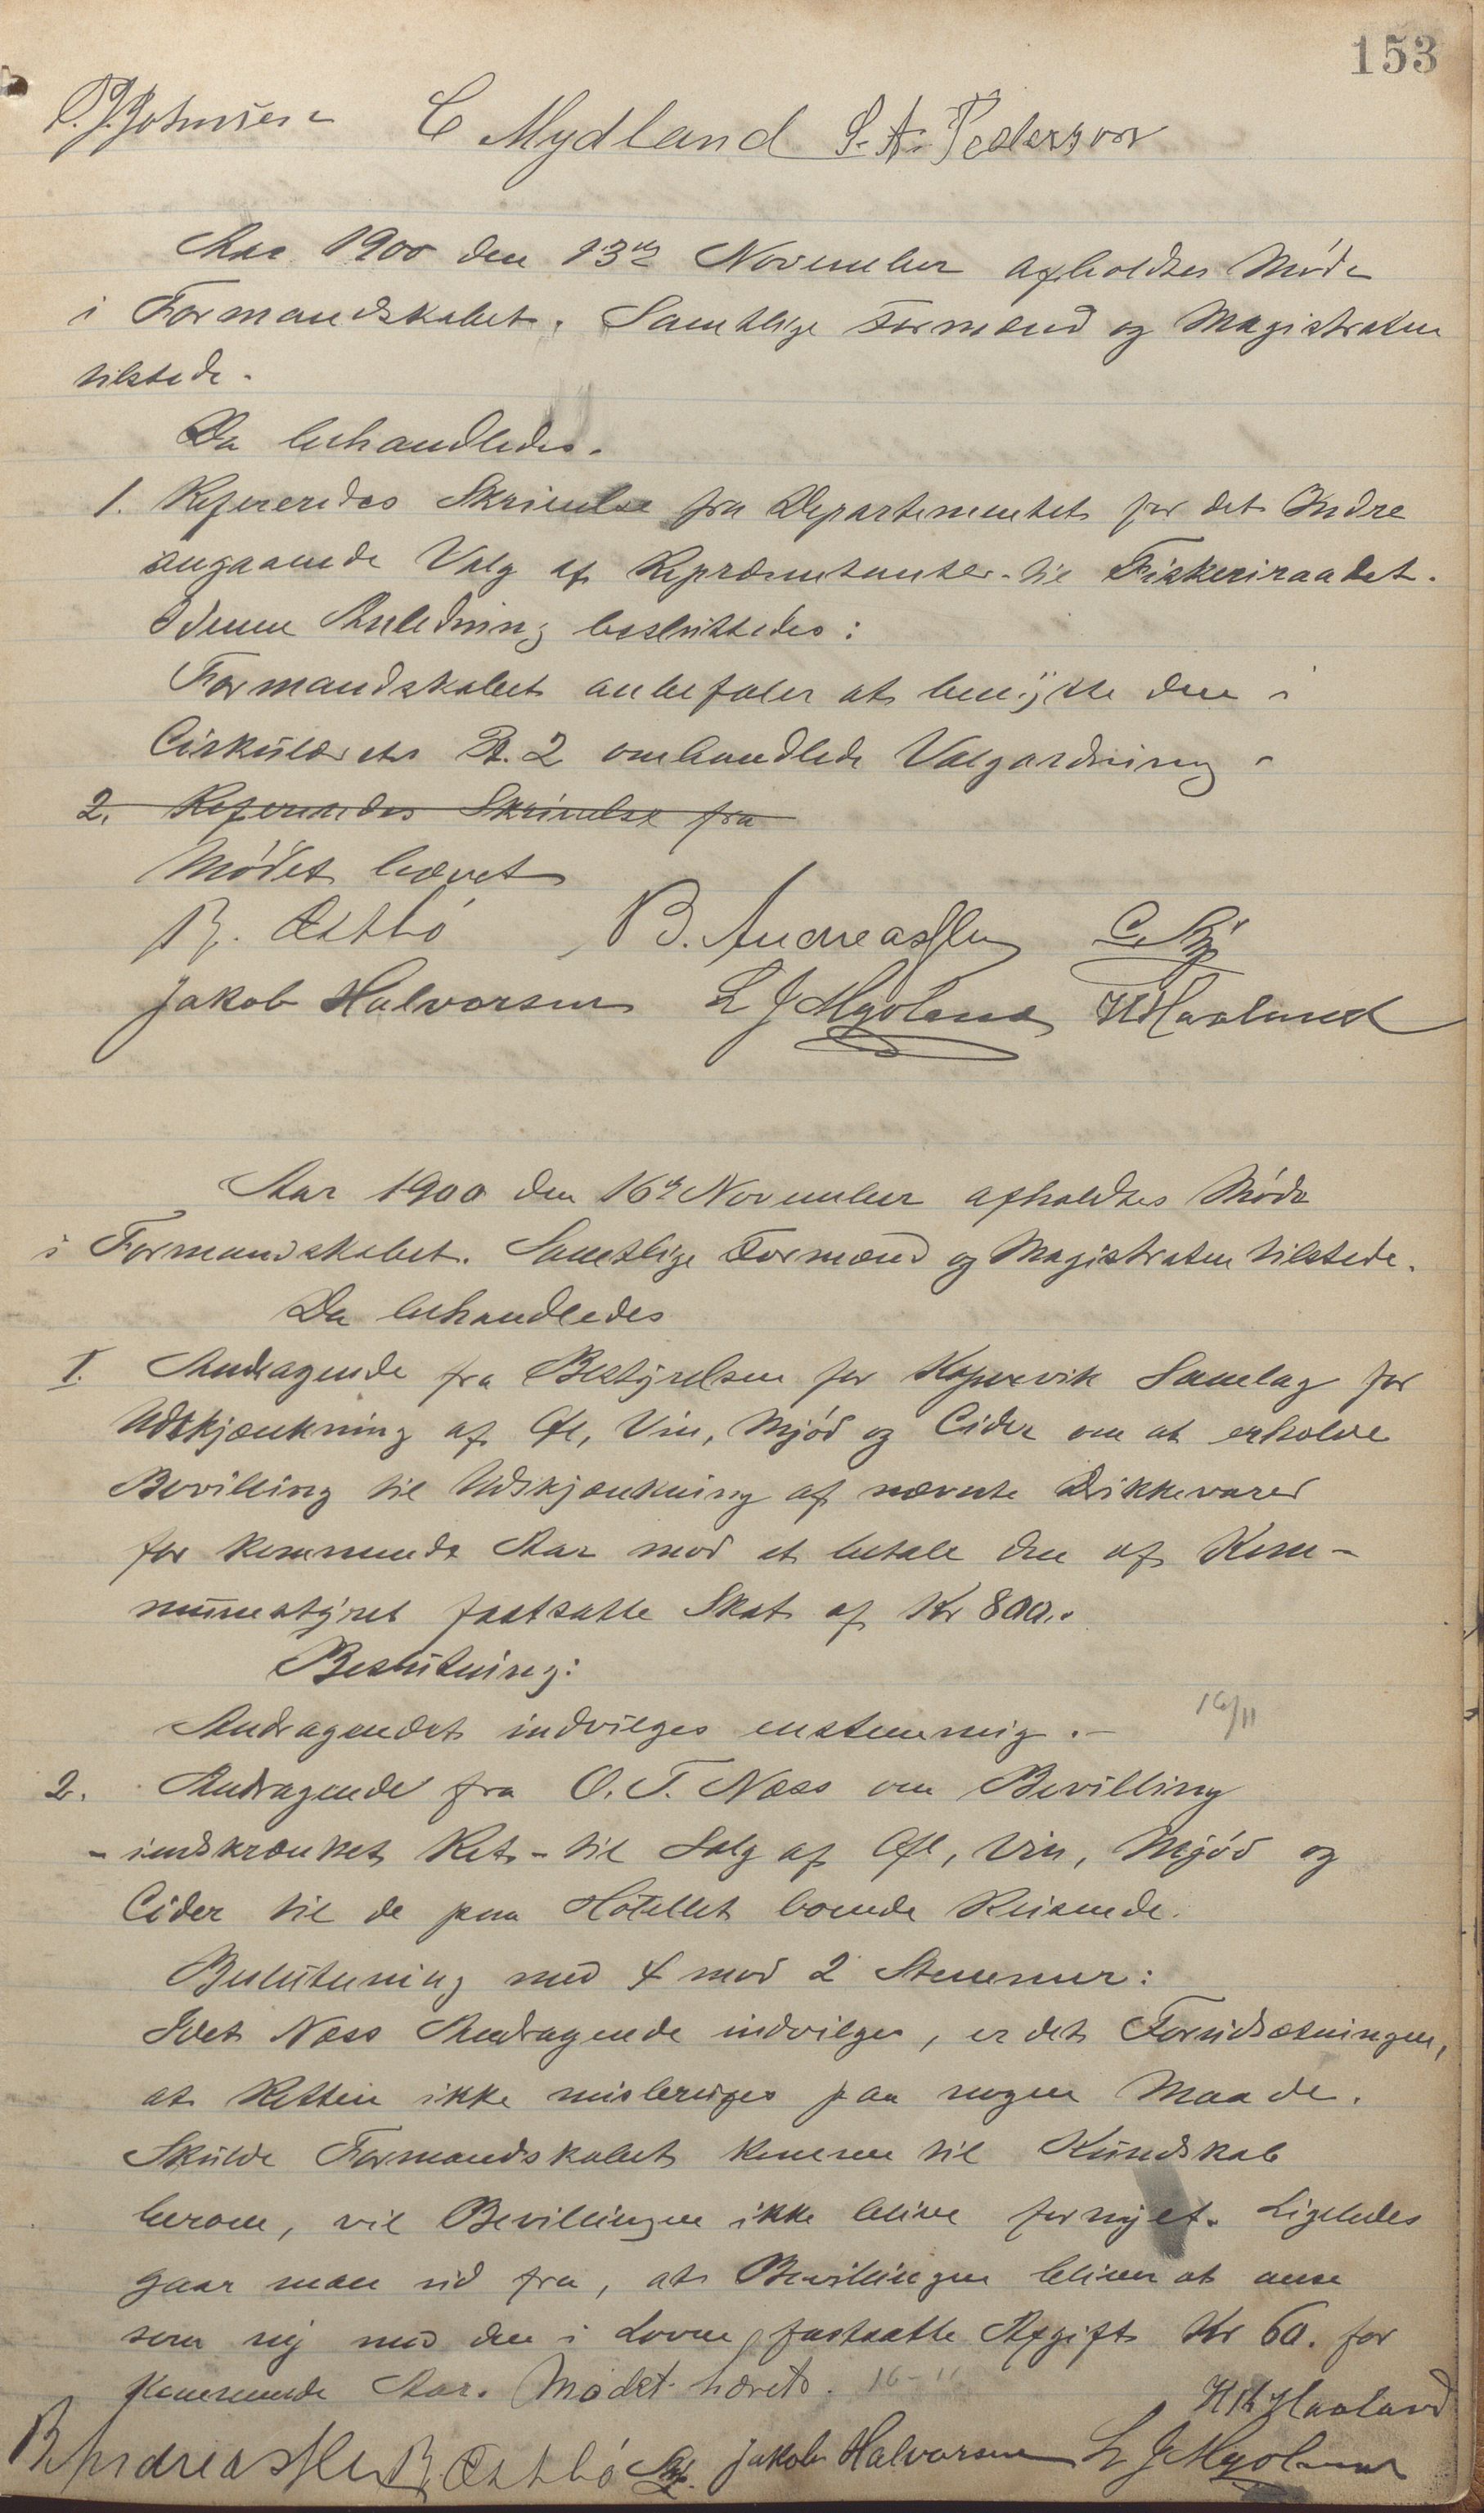 153
C Mydland S. A. Pederson
Aar 1900 den 13de November afholdtes Møde
i Formandskabet. Samtlige Formænd og Magistraten
tilstede.
Da behandledes.
1. Refereredes Skrivelse fra Departementet for det Indre
angaaende Valg af Repræsentanter til Fiskeriraadet.
I denne Anledning besluttedes:
Formandskabet anbefaler at benytte den i
Cirkulærets Pt. 2 omhandlede Valgordning
2. Refereredes Skrivelse fra
Mødet hævet
R. Østbø B. Andreassen
Jakob Halvorsen L J Mydland Haaland
Aar 1900 den 16de November afholdtes Møde
i Formandskabet. Samtlige Formænd og Magistraten tilstede.
Da behandledes
I. Andragende fra Bestyrelsen for Kopervik Samlag for
Udskjænkning af Øl, Vin, Mjød og Cider om at erholde
Bevilling til Udskjænkning af nævnte Drikkevarer
for kommende Aar mod at betale den af Kom-
munestyret fastsatte Skat af Kr 800.
Beslutning:
Andragendet indvilges enstemmig.- 16/11
2. Andragende fra O. T. Næss om Bevilling
- indskrænket Ret - til Salg af Øl, Vin, Mjød og
Cider til de paa Hotellet boende Reisende.
Beslutning med 4 mod 2 Stemmer:
Idet Næss Andragende indvilges, er det Forudsætningen,
at Retten ikke misbruges paa nogen Maade.
Skulde Formandskabet komme til Kundskab
herom, vil Bevillingen ikke blive fornyet. Ligeledes
gaar man ud fra, at Bevillingen bliver at anse
som ny med den i Loven fastsatte Afgift Kr 60. for
kommende Aar. Mødet hævet. 16-11
Haaland
B. Andreassen R. Østbø Jakob Halvorsen L J Mydland